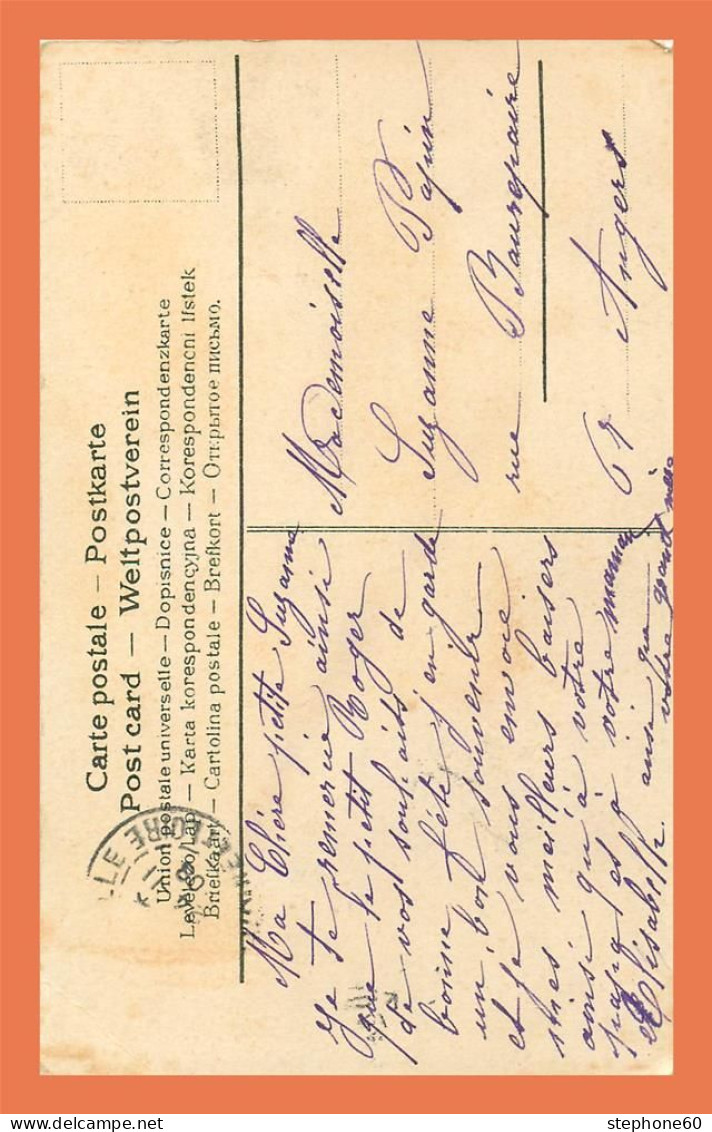 Carte postale – Postkarte
Post card – Weltpostverein
Union postale universelle – Dopisnice – Correspondenzkarte
Levelező-Lap – Karta korespondencyjna – Korespondenční lístek
Briefkaart – Cartolina postale – Brefkort – Открытое письмо.
Ma Chère petite Suzanne
Je te remercie ainsi
que le petit Roger
de vos souhaits de
bonne fête j'en garde
un bon souvenir
et je vous envoie
mes meilleurs baisers
ainsi qu'à votre
papa et à votre maman
et Elisabelle. ainsi que
votre grand
Mademoiselle
Suzanne Papin
rue Beaurepaire
67 Angers
LLE
ET LOIRE
stephone60